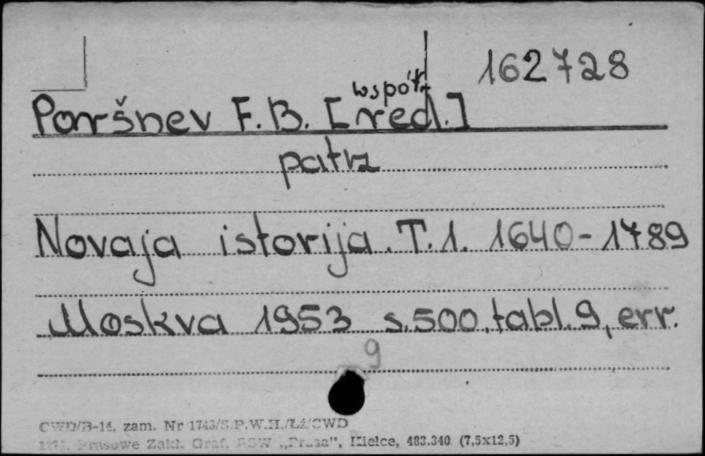 162728
współ.
Poršnev F.B. [red.]
patrz
Novaja istorija. T.1. 1640-1789
Moskva 1953 s.500, tabl.9, err.
9
CWD/B-14, zam. Nr 1743/S.P.W.H./Łź/CWD
Prasowe Zakł. Graf. RSW „Prasa", Kielce, 483.340 (7,5x12,5)